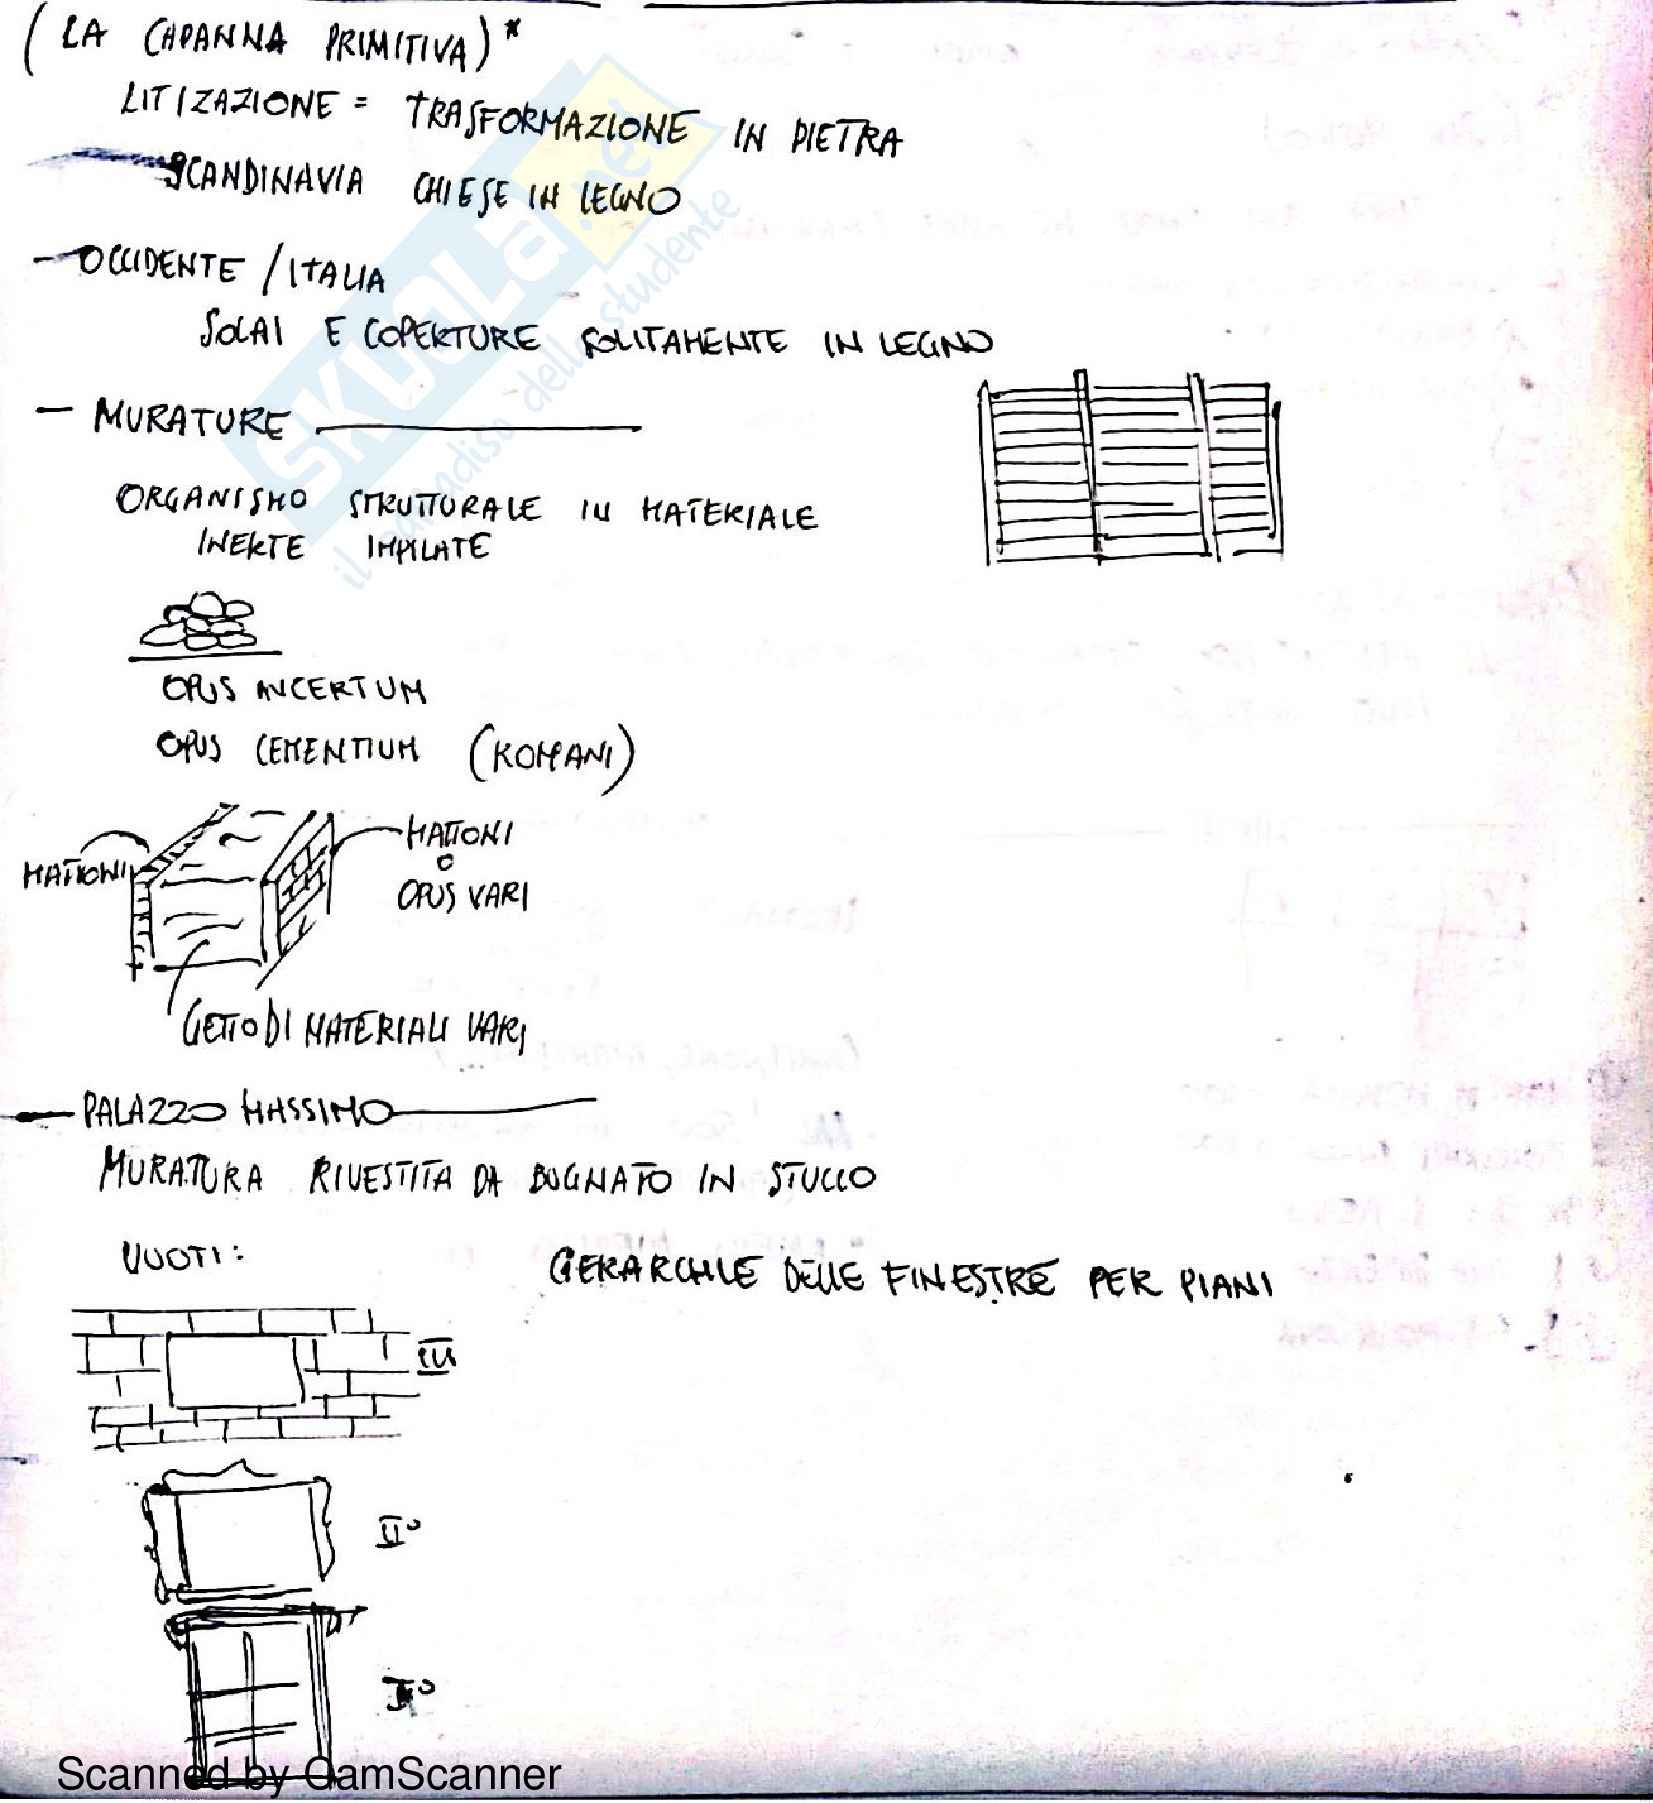 (LA CAPANNA PRIMITIVA)*
LITIZAZIONE = TRASFORMAZIONE IN PIETRA
SCANDINAVIA CHIESE IN LEGNO
— OCCIDENTE / ITALIA
SOLAI E COPERTURE SOLITAMENTE IN LEGNO
— MURATURE
ORGANISMO STRUTTURALE IN MATERIALE
INERTE IMPILATE
OPUS INCERTUM
OPUS CEMENTIUM (ROMANI)
MATTONI
MATTONI
O
OPUS VARI
GETTO DI MATERIALI VARI
— PALAZZO MASSIMO
MURATURA RIVESTITA DA BUGNATO IN STUCCO
VUOTI:
GERARCHIE DELLE FINESTRE PER PIANI
III
II°
I°
SKUOLA.net
il paradiso dello studente
Scanned by CamScanner